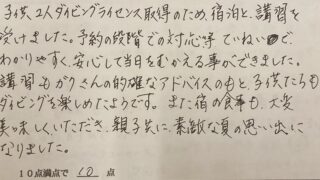 子供、2人ダイビングライセンス取得のため、宿泊と、講習を
受けました。予約の段階での対応等 ていねいで、
わかりやすく、安心して当日をむかえる事ができました。
講習もガクさんの的確なアドバイスのもと、子供たちも
ダイビングを楽しめたようです。また宿の食事も、大変
美味しくいただき、親子共に、素敵な夏の思い出に
なりました。
10点満点で 10 点